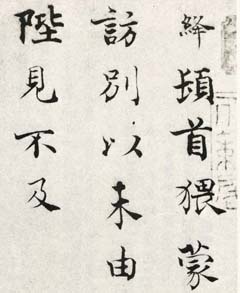 絳頓首猥蒙
訪別以未由
陛見不及